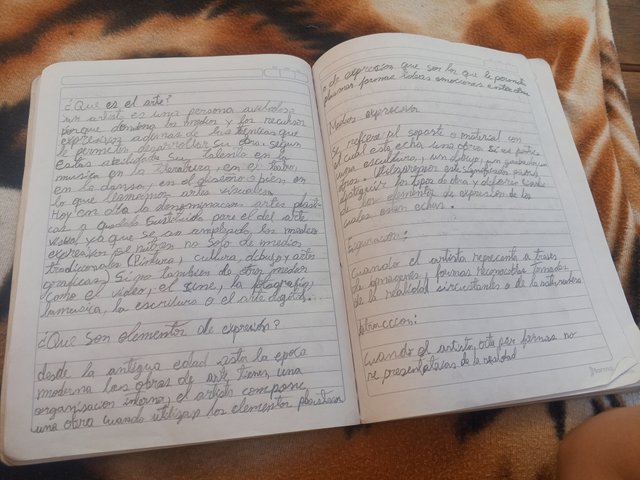 ¿Que es el arte?
un artista es una persona
porque domina los medios y los recursos
expresivos ademas de las tecnicas que
le permiten desarrollar su obra. segun
en la
musica en la literatura, en el teatro,
en la danza, en el o bien en
lo que llamamos artes visuales
Hoy en dia la denominacion artes plasti-
cas a quedado sustituida pare el del arte
visual ya que se an ampliado, los medios
expresivos no solo de medios
tradicionales (Pintura, cultura, dibujo y artes
graficas) Si no tambien de otros medios
como el video, el cine, la fotografia,
la musica, la escritura o el arte digital.
¿Que Son elementos de expresion?
desde la antigua edad asta la epoca
moderna las obras de arte tienen una
organisacion interna, el artista compone
una obra cuando utilizan los elementos plasticos
o de expresion que son los que le permite
plasmar formas ideas emociones
Medios expresivos
Se refiere al soporte o material con
el cual esta echo una obra si es pintura
una escultura, un dibujo, un
otros. este significado para
distinguir los tipos de obra y
de los elementos de expresion de los
cuales estan echos.
Figuracion:
Cuando el artista representa a traves
de imagenes, formas reconocibles tomadas
de la realidad circustantes o de la naturaleza
Cuando el artista opta por formas no
representativas de la realidad
Norma